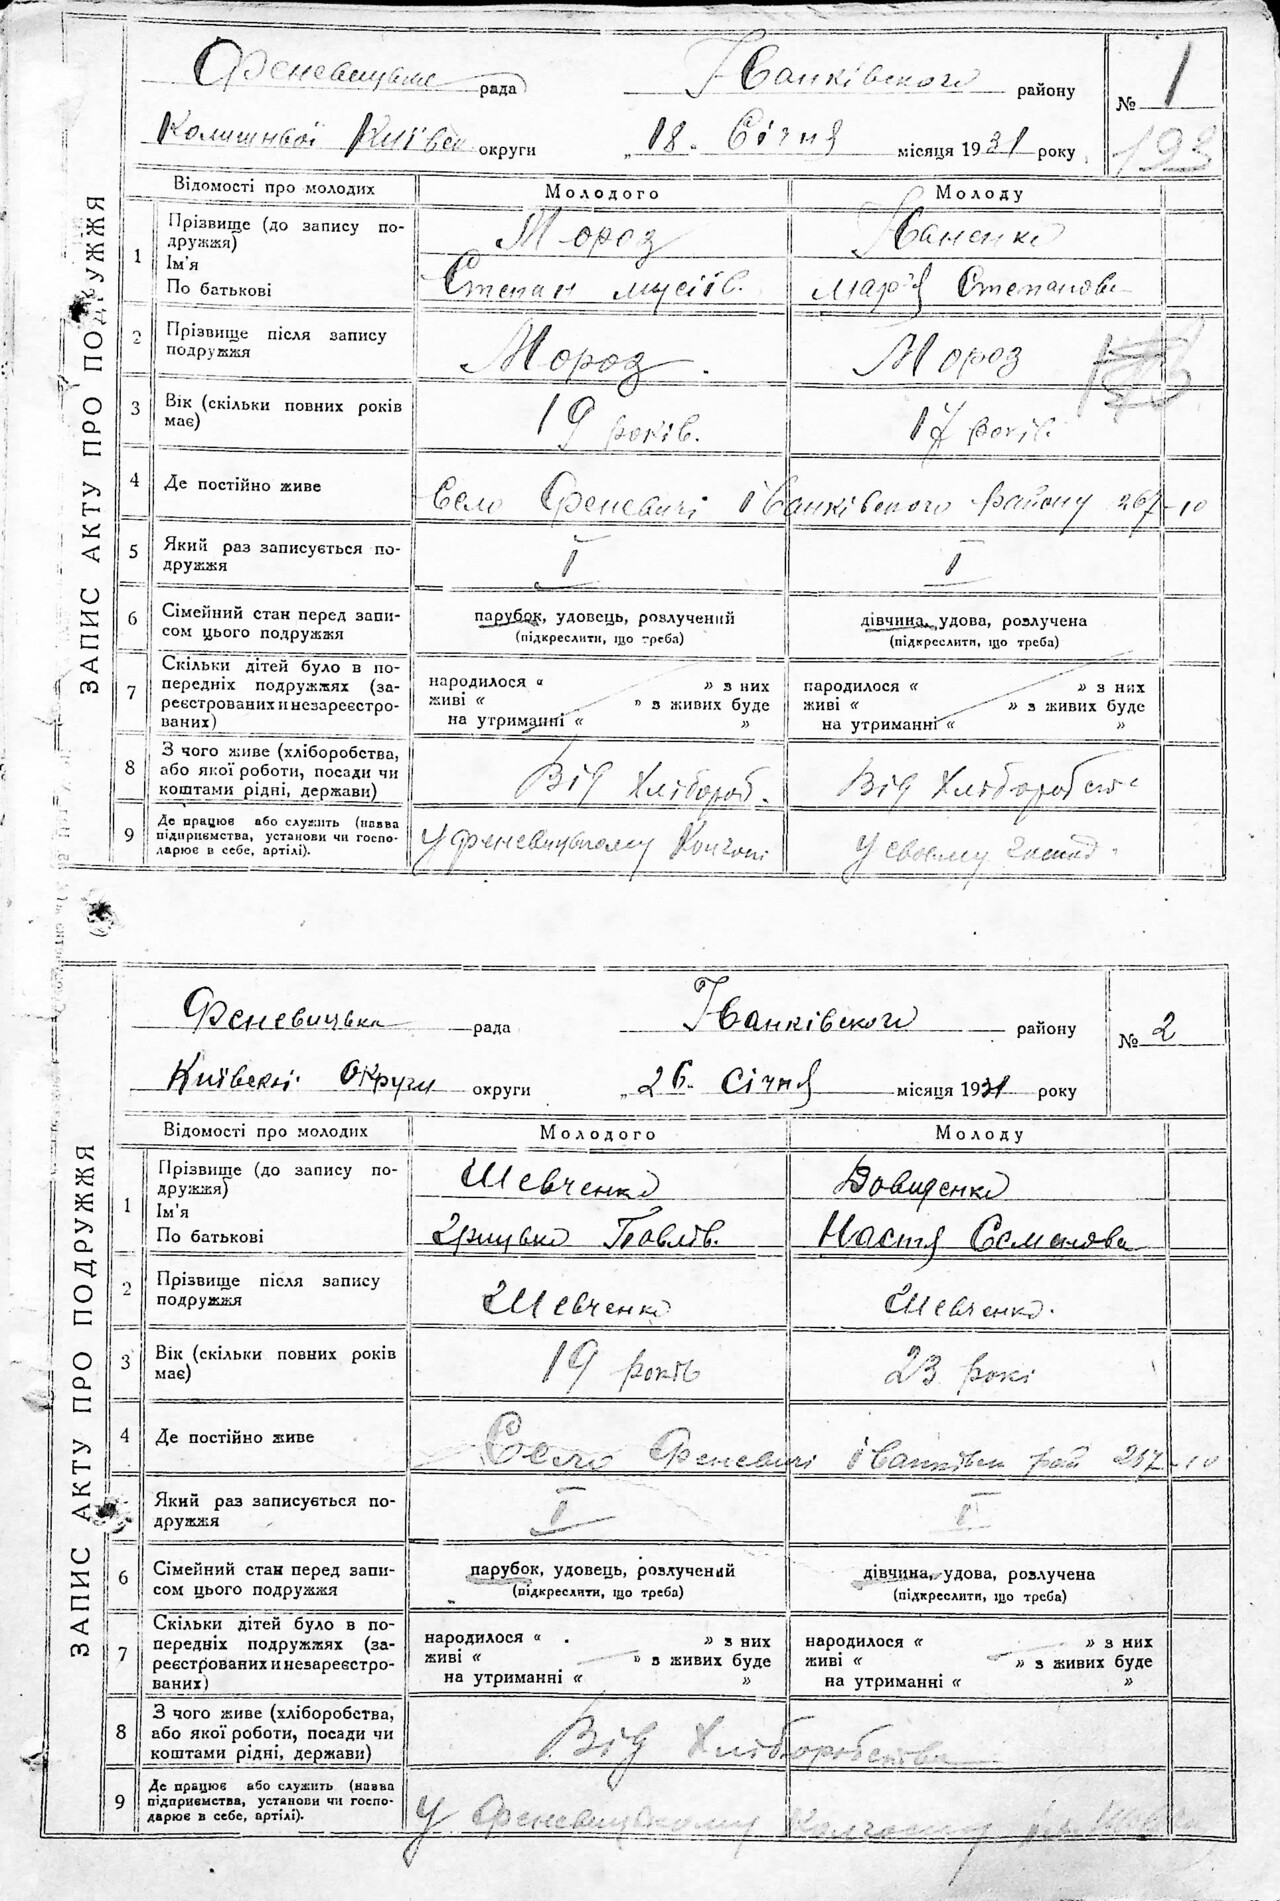 Феневицька рада Іванківского району № 1
Колишньої Київськ округи „18. Січня місяця 1931 року 193
ЗАПИС АКТУ ПРО ПОДРУЖЖЯ
Відомості про молодих Молодого Молоду
1 Прізвище (до запису по- Мороз Іваненко
дружжя)
Ім'я Степан Мусіїв. Мар'я Степанова
По батькові
2 Прізвище після запису Мороз. Мороз
подружжя
3 Вік (скільки повних років 19 років. 17 років.
має)
4 Де постійно живе Село Феневичі Іванківського району 267-10
5 Який раз записується по- І І
дружжя
6 Сімейний стан перед запи- парубок, удовець, розлучений дівчина, удова, розлучена
сом цього подружжя (підкреслити, що треба) (підкреслити, що треба)
7 Скільки дітей було в по-
передніх подружжях (за- народилося “ » з них народилося “ » з них
реєстрованих и незареєстро- живі “ » з живих буде живі “ » з живих буде
ваних) на утриманні “ » на утриманні “ »
8 З чого живе (хліборобства, Від Хлібороб. Від Хліборобст
або якої роботи, посади чи
коштами рідні, держави)
9 Де працює або служить (назва У Феневицькому У своєму господ.
підприємства, установи чи госпо-
дарює в себе, артілі).
Феневицька рада Іванківского району № 2
Київскі округи округи „26. Січня місяця 1931 року
ЗАПИС АКТУ ПРО ПОДРУЖЖЯ
Відомості про молодих Молодого Молоду
1 Прізвище (до запису по- Шевченко Довиденко
дружжя)
Ім'я Грицько Павлів. Настя Семенова
По батькові
2 Прізвище після запису Шевченко Шевченко.
подружжя
3 Вік (скільки повних років 19 років 23 рокі
має)
4 Де постійно живе Село Феневичі Іванківськ рай 267-10
Який раз записується по- І І
дружжя
6 Сімейний стан перед запи- парубок, удовець, розлучений дівчина, удова, розлучена
сом цього подружжя (підкреслити, що треба) (підкреслити, що треба)
7 Скільки дітей було в по-
передніх подружжях (за- народилося “ » з них народилося “ » з них
реєстрованих и незареєстро- живі “ » з живих буде живі “ » з живих буде
ваних) на утриманні “ » на утриманні “ »
8 З чого живе (хліборобства, Від Хліборобства
або якої роботи, посади чи
коштами рідні, держави)
9 Де працює або служить (назва У Феневицькому Колгоспу
підприємства, установи чи госпо-
дарює в себе, артілі).